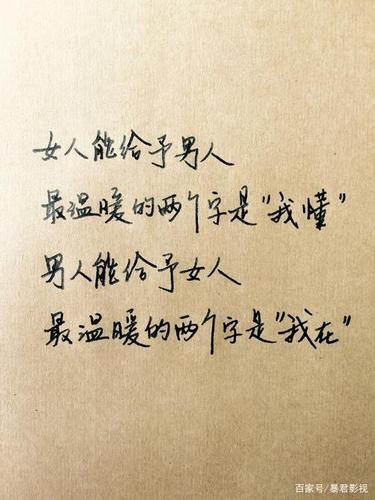 女人能给予男人
最温暖的两个字是"我懂"
男人能给予女人
最温暖的两个字是"我在"
百家号/暴君影视